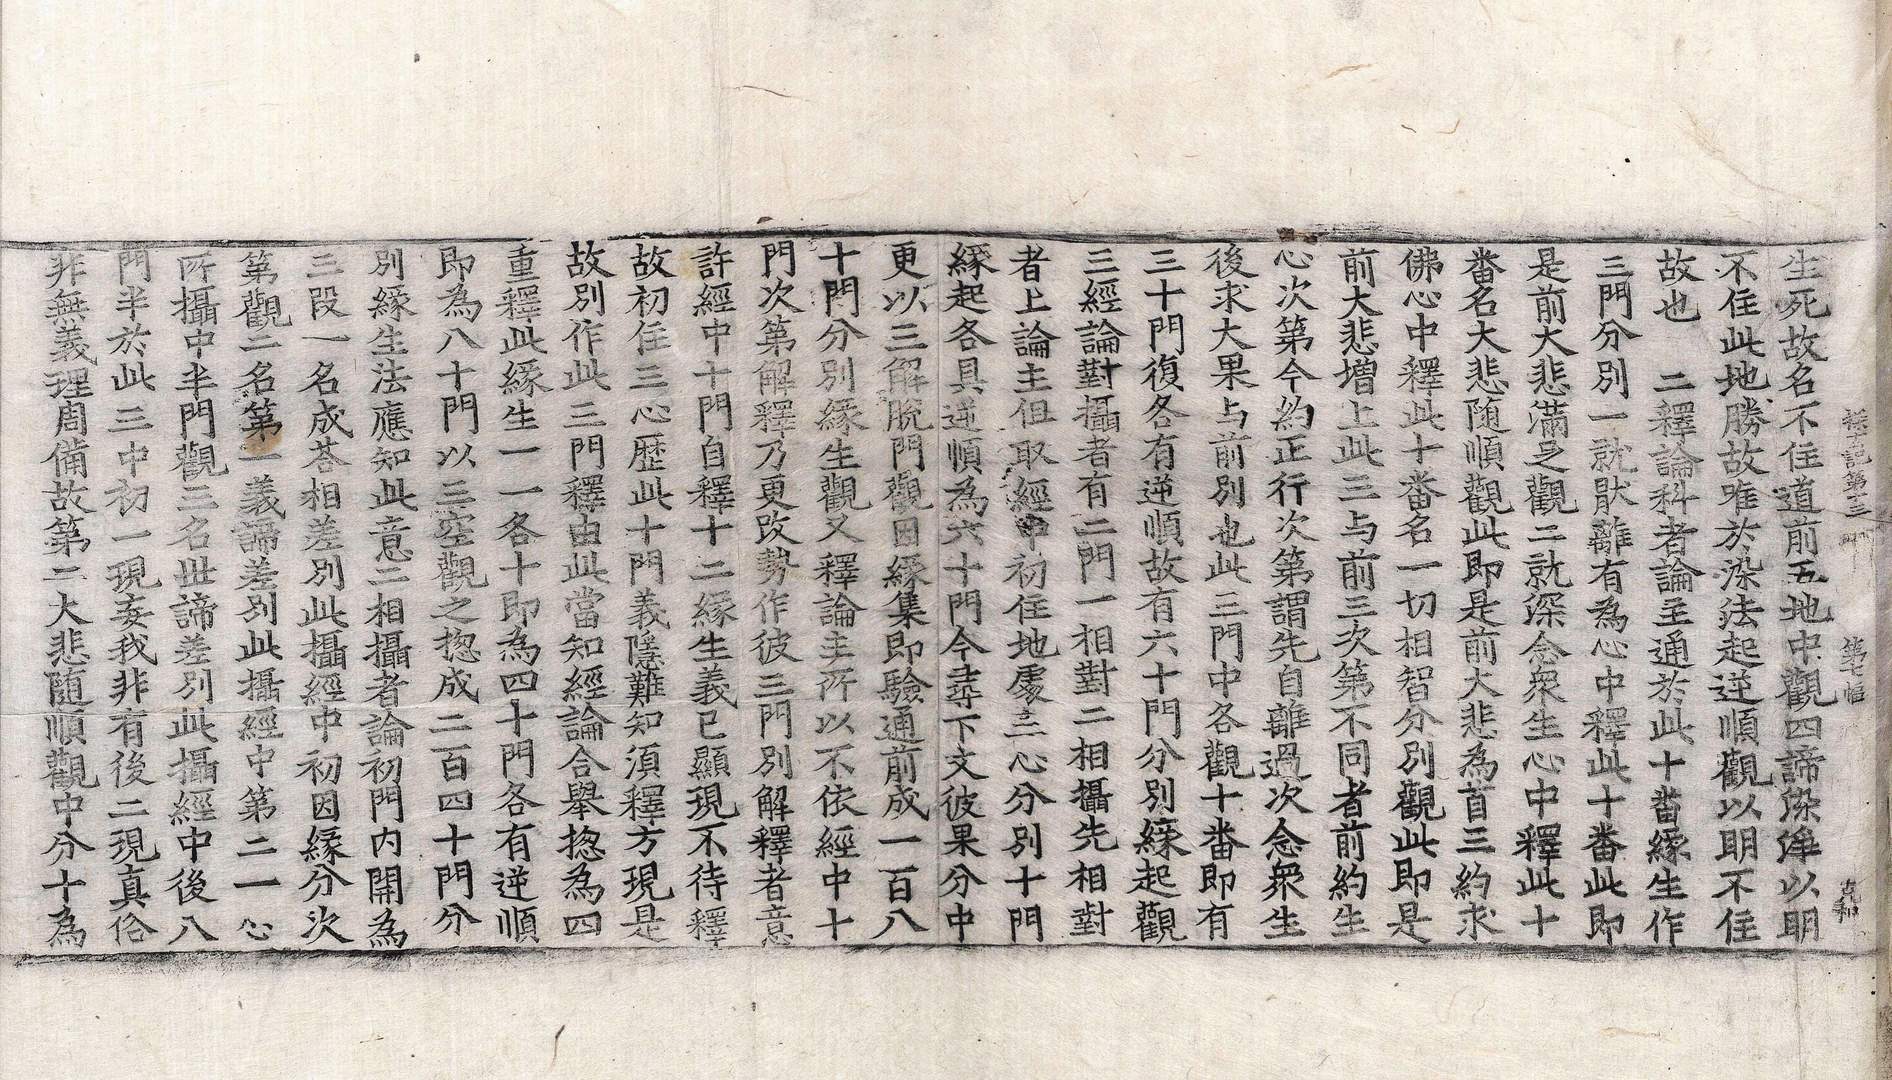 探玄記第十三　第七幅
生死故名不住道前五地中觀四諦染淨以明
不住此地勝故唯於染法起逆順觀以明不住
故也　二釋論科者論主通於此十番緣生作
三門分別一就猒離有為心中釋此十番此即
是前大悲滿足觀二就深念衆生心中釋此十
番名大悲随順觀此即是前大悲為首三約求
佛心中釋此十番名一切相智分別觀此即是
前大悲增上此三与前三次第不同者前約生
心次第今約正行次第謂先自離過次念衆生
後求大果与前別也此三門中各觀十番即有
三十門復各有逆順故有六十門分別緣起觀
三經論對攝者有二門一相對二相攝先相對
者上論主但取經中初住地處三心分別十門
緣起各具逆順為六十門今尋下文彼果分中
更以三解脫門觀因緣集即驗通前成一百八
十門分別緣生觀又釋論主所以不依經中十
門次第解釋乃更改勢作彼三門別解釋者意
許經中十門自釋十二緣生義已顯現不待釋
故初住三心歷此十門義隱難知須釋方現是
故別作此三門釋由此當知經論合舉揔為四
重釋此緣生一一各十即為四十門各有逆順
即為八十門以三空觀之揔成二百四十門分
別緣生法應知此意二相攝者論初門内開為
三段一名成荅相差別此攝經中初因緣分次
第觀二名第一義諦差別此攝經中第二一心
所攝中半門觀三名世諦差別此攝經中後八
門半於此三中初一現妄我非有後二現真俗
非無義理周備故第二大悲随順觀中分十為